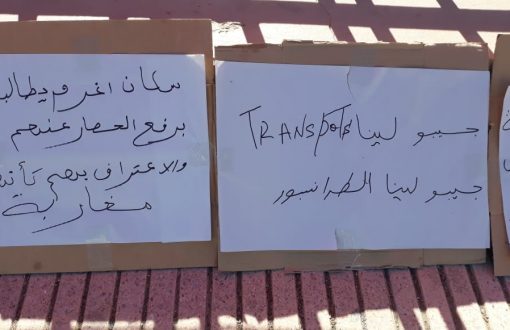 جيبو لينا TRANSpoTs
جيبو لينا الطرانسبور
سكان اغرم يطالبـ
برفع الحصار عنهم
والاعتراف بهم
مغاربة